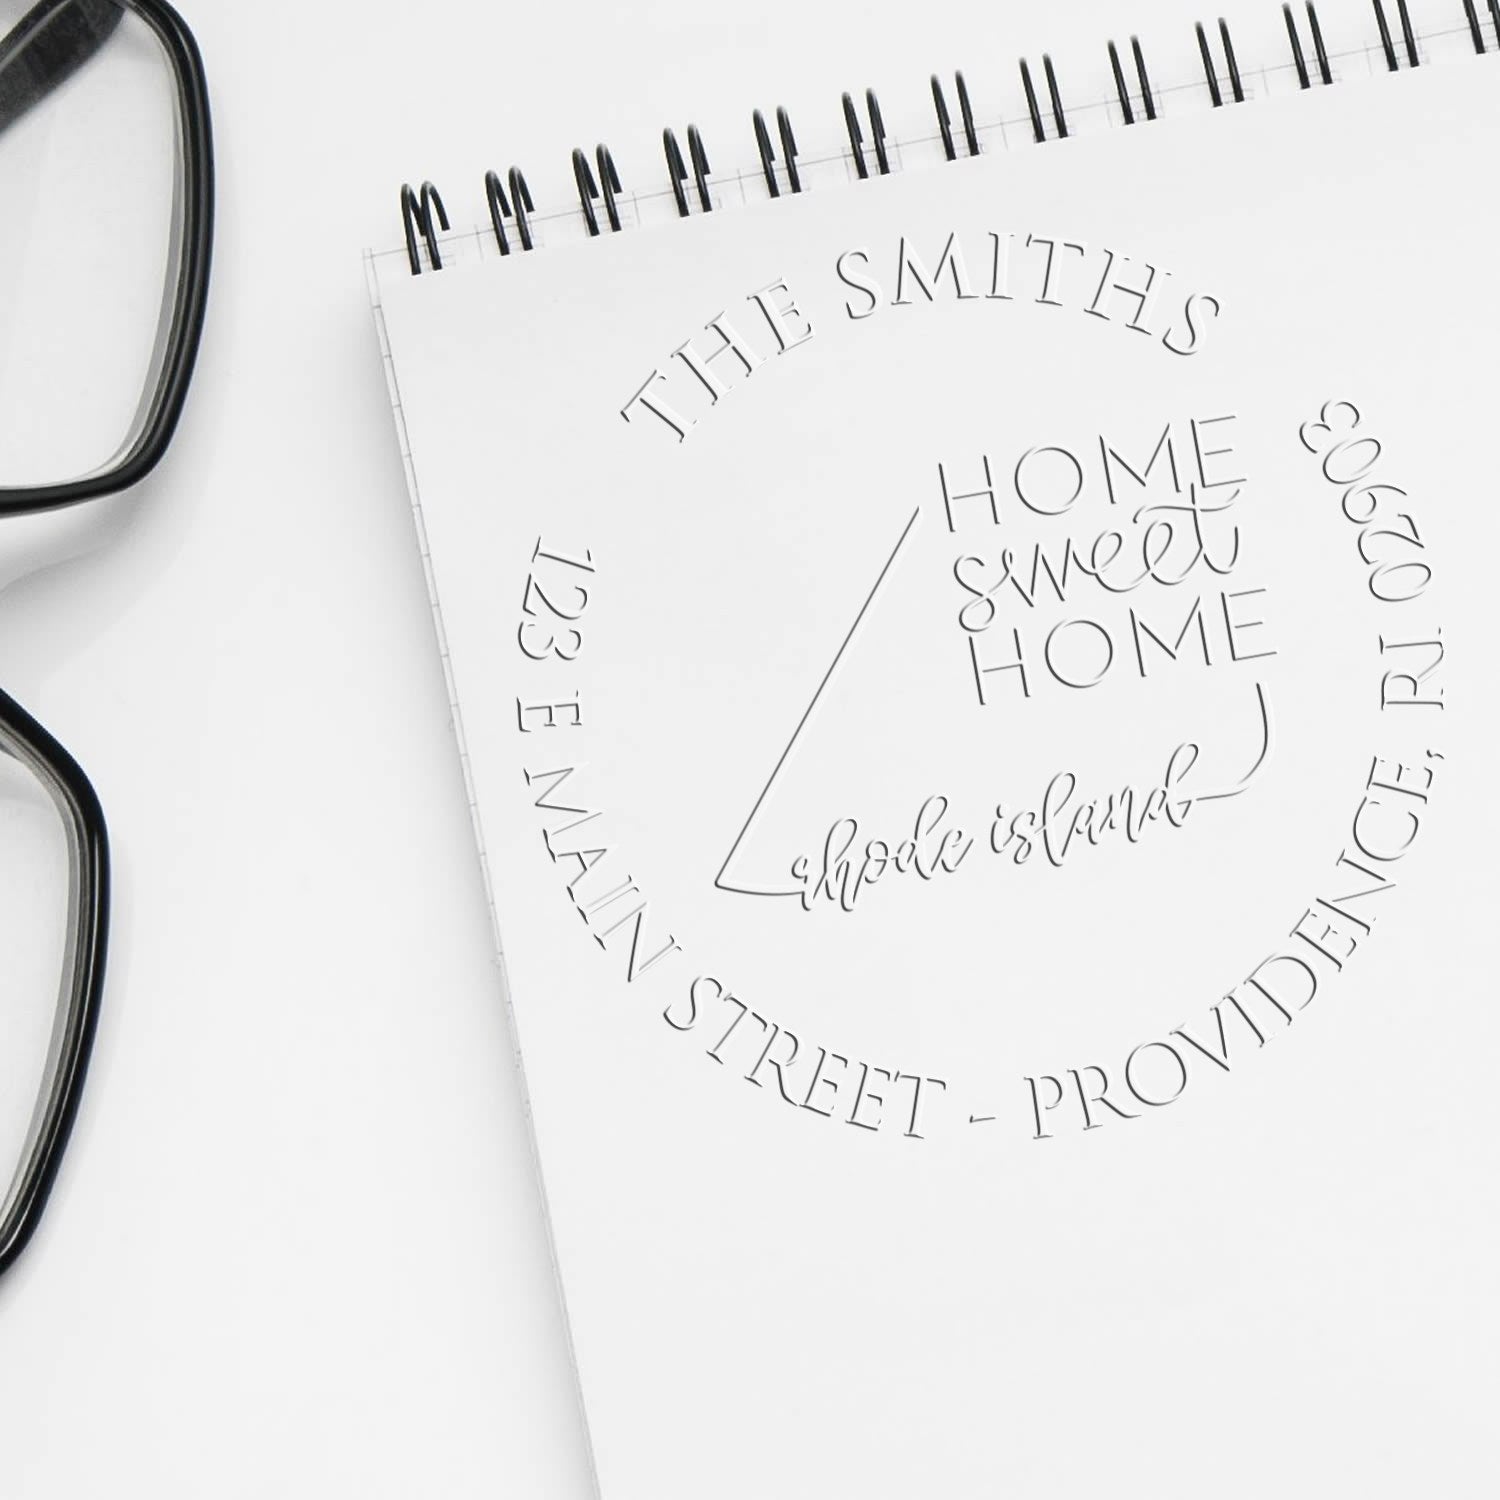 THE SMITHS
HOME
sweet
HOME
rhode island
123 E MAIN STREET - PROVIDENCE, RI 02903